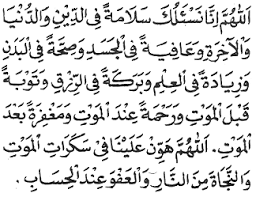 اَللّٰهُمَّ اِنَّا نَسْئَلُكَ سَلَامَةً فِى الدِّيْنِ وَالدُّنْيَا
وَالْاٰخِرَةِ وَعَافِيَةً فِى الْجَسَدِ وَصِحَّةً فِى الْبَدَنِ
وَزِيَادَةً فِى الْعِلْمِ وَبَرَكَةً فِى الرِّزْقِ وَتَوْبَةً
قَبْلَ الْمَوْتِ وَرَحْمَةً عِنْدَ الْمَوْتِ وَمَغْفِرَةً بَعْدَ
الْمَوْتِ. اَللّٰهُمَّ هَوِّنْ عَلَيْنَا فِى سَكَرَاتِ الْمَوْتِ
وَالنَّجَاةَ مِنَ النَّارِ وَالْعَفْوَ عِنْدَ الْحِسَابِ.